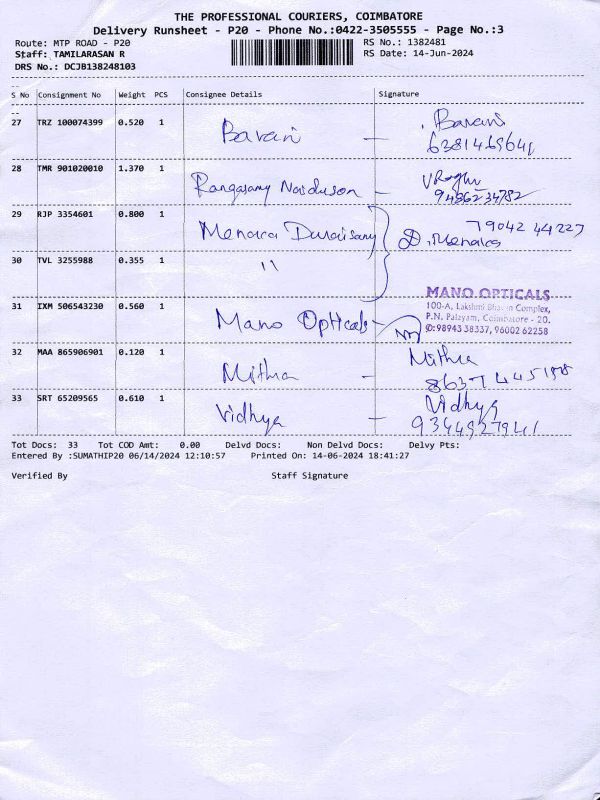 THE PROFESSIONAL COURIERS, COIMBATORE
Delivery Runsheet - P20 - Phone No.:0422-3505555 - Page No.:3
Route: MTP ROAD - P20 RS No.: 1382481
Staff: TAMILARASAN R RS Date: 14-Jun-2024
DRS No.: DCJB138248103
S No Consignment No Weight PCS Consignee Details Signature
27 TRZ 100074399 0.520 1 Barani - Barani
28 TMR 901020010 1.370 1 Rangasamy - V Raghu
9486234782
29 RJP 3354601 0.800 1 Menaca Duraisamy D. Menaca 79042 44227
30 TVL 3255988 0.355 1 "
31 IXM 506543230 0.560 1 Mano Opticals -
MANO OPTICALS
100-A, Lakshmi Bhavan Complex,
P.N. Palayam, Coimbatore - 20.
✆: 98943 38337, 96002 62258
32 MAA 865906901 0.120 1 Mithra - Mithra
33 SRT 65209565 0.610 1 Vidhya - Vidhya
9344927941
Tot Docs: 33 Tot COD Amt: 0.00 Delvd Docs: Non Delvd Docs: Delvy Pts:
Entered By :SUMATHIP20 06/14/2024 12:10:57 Printed On: 14-06-2024 18:41:27
Verified By Staff Signature